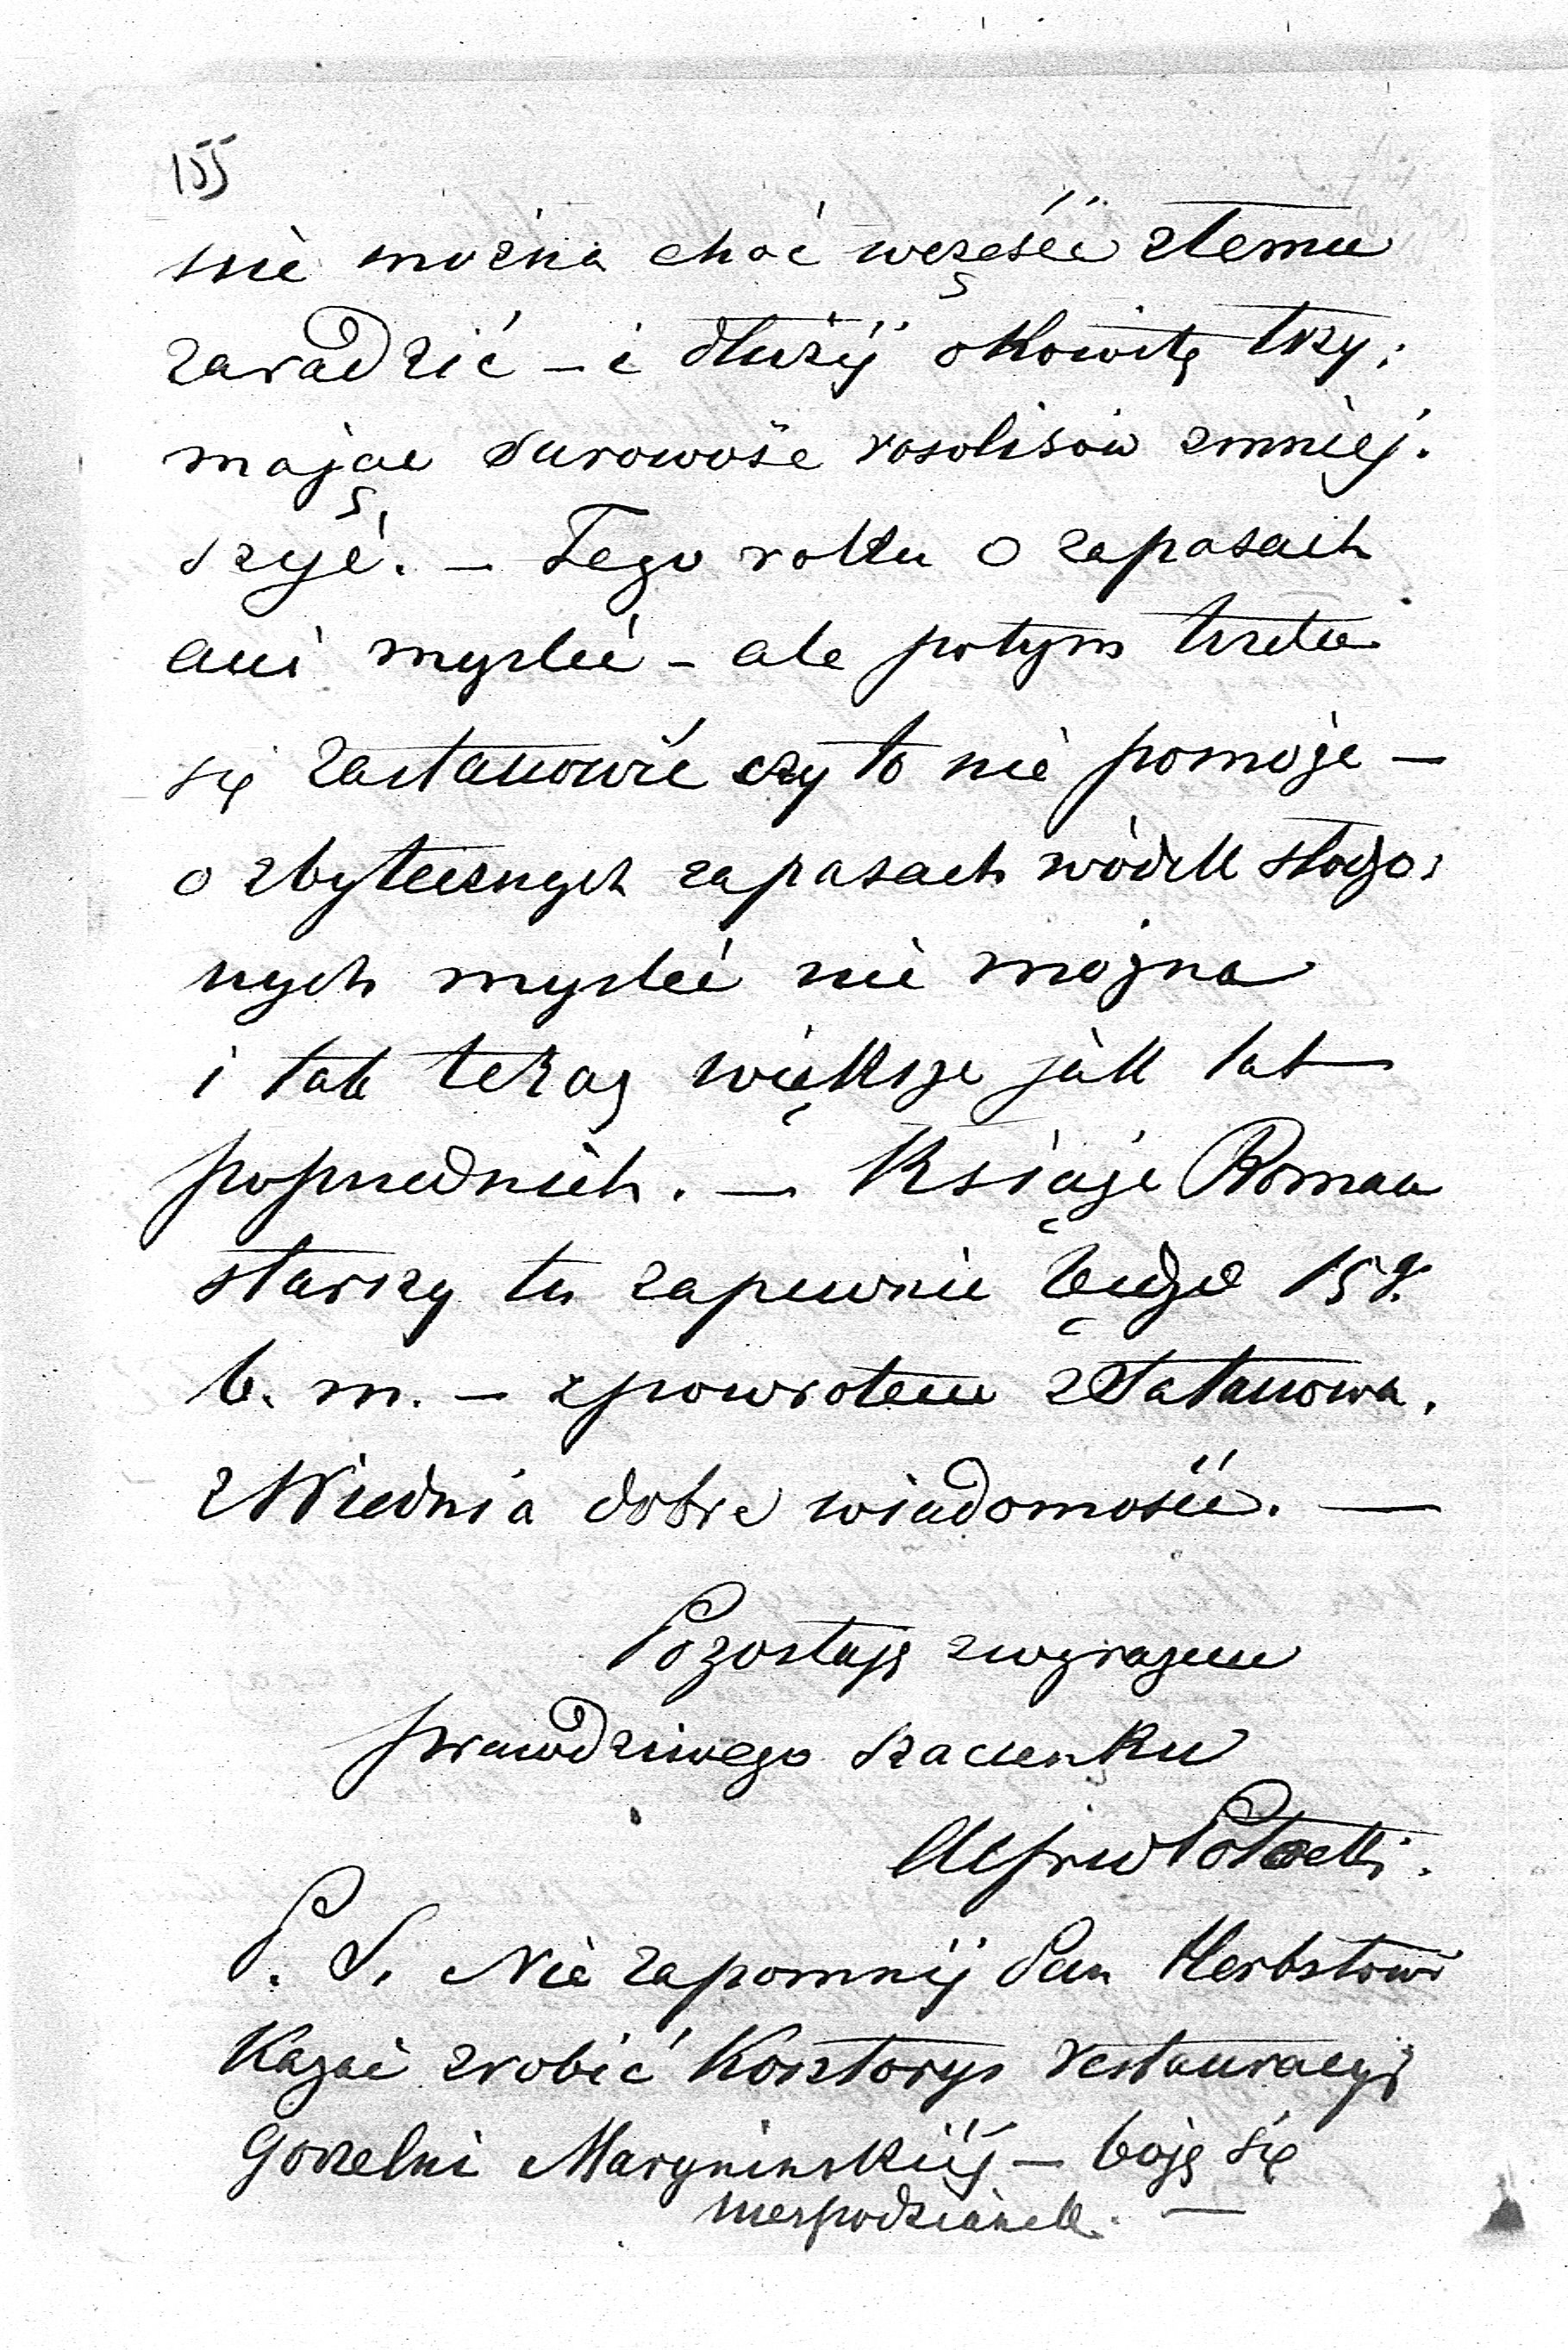 155
nie można choć w części złemu
zaradzić – i dłużéj okowitę trzy:
mając surowość rosolisów zmniej.
szyć. – Tego roku o zapasach
ani mysleć – ale potym trzeba
się zastanowić czy to nie pomoże –
o zbytecznych zapasach wódek słodzo:
nych mysleć nie można
i tak teraz większe jak lat
poprzednich. – Książe Roman
starszy tu zapewnie będzie 15g.
b. m. – z powrotem z Satanowa.
z Wiednia dobre wiadomości. –
Pozostaję z wyrazem
prawdziwego szacunku
Alfred Potocki.
P. S. Nie zapomnij Pan Herbstowi
Kazać zrobić Kosztorys restauracyi
Gorzelni Maryninskiéj – boję się
niespodzianek. –